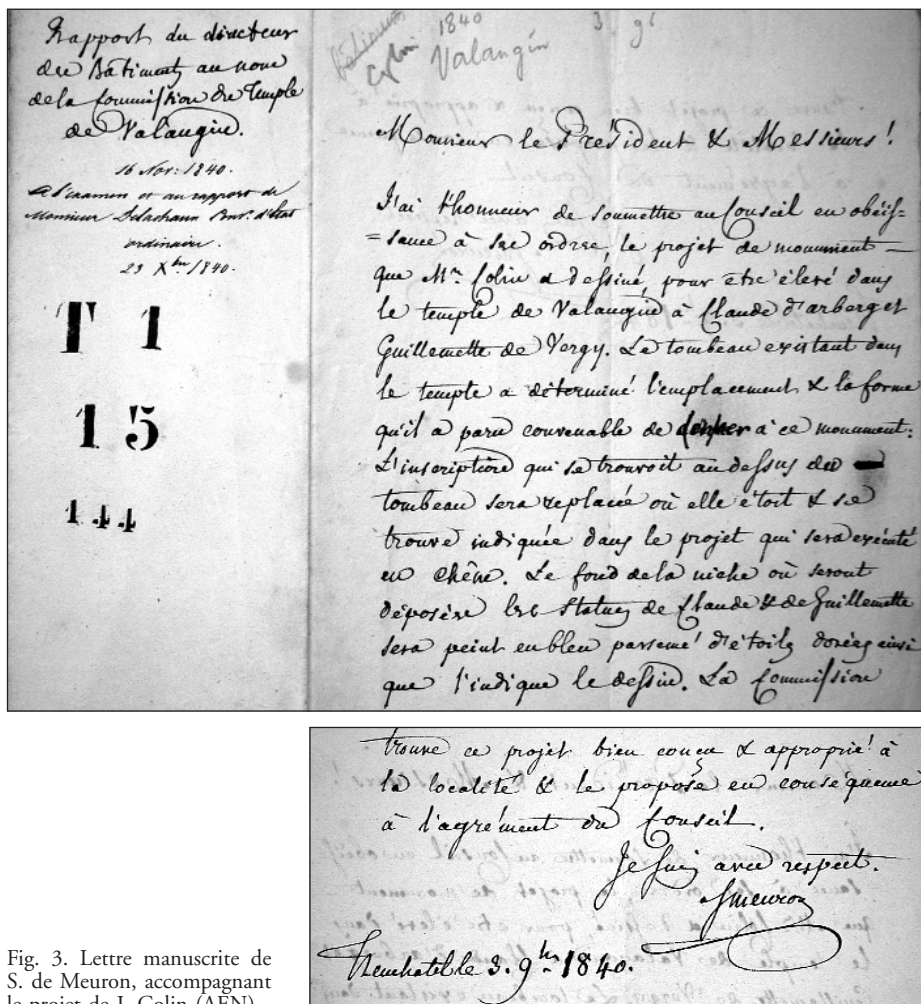 Rapport du directeur
des Bâtiments au nom
de la Commission du Temple
de Valangin.
16 Nov: 1840.
A l'examen et au rapport de
Monsieur Delachaux d'Etat
ordinaire.
23 Xbre 1840.
T 1
15
144
Bâtimens 1840 3. 9b
Colin Valangin
Monsieur le Président & Messieurs!
J'ai l'honneur de soumettre au Conseil en obéis=
=sance à ses ordres, le projet de monument
que Mr. Colin a dessiné, pour etre élevé dans
le temple de Valangin à Claude d'arberg et
Guillemette de Vergy. Le tombeau existant dans
le temple a déterminé l'emplacement & la forme
qu'il a paru convenable de donner à ce monument:
L'inscription qui se trouvoit au dessus du
tombeau sera replacée où elle étoit & se
trouve indiquée dans le projet qui sera exécuté
en chêne. Le fond de la niche où seront
déposées les Statues de Claude & de Guillemette
sera peint en bleu parsemé d'étoiles dorées ainsi
que l'indique le dessin. La Commission
trouve ce projet bien conçu & approprié à
la localité & le propose en conséquence
à l'agrément du Conseil.
Je suis avec respect.
SMeuron
Neuchatel le 3. 9bre 1840.
Fig. 3. Lettre manuscrite de
S. de Meuron, accompagnant
le projet de J. Colin (AEN).